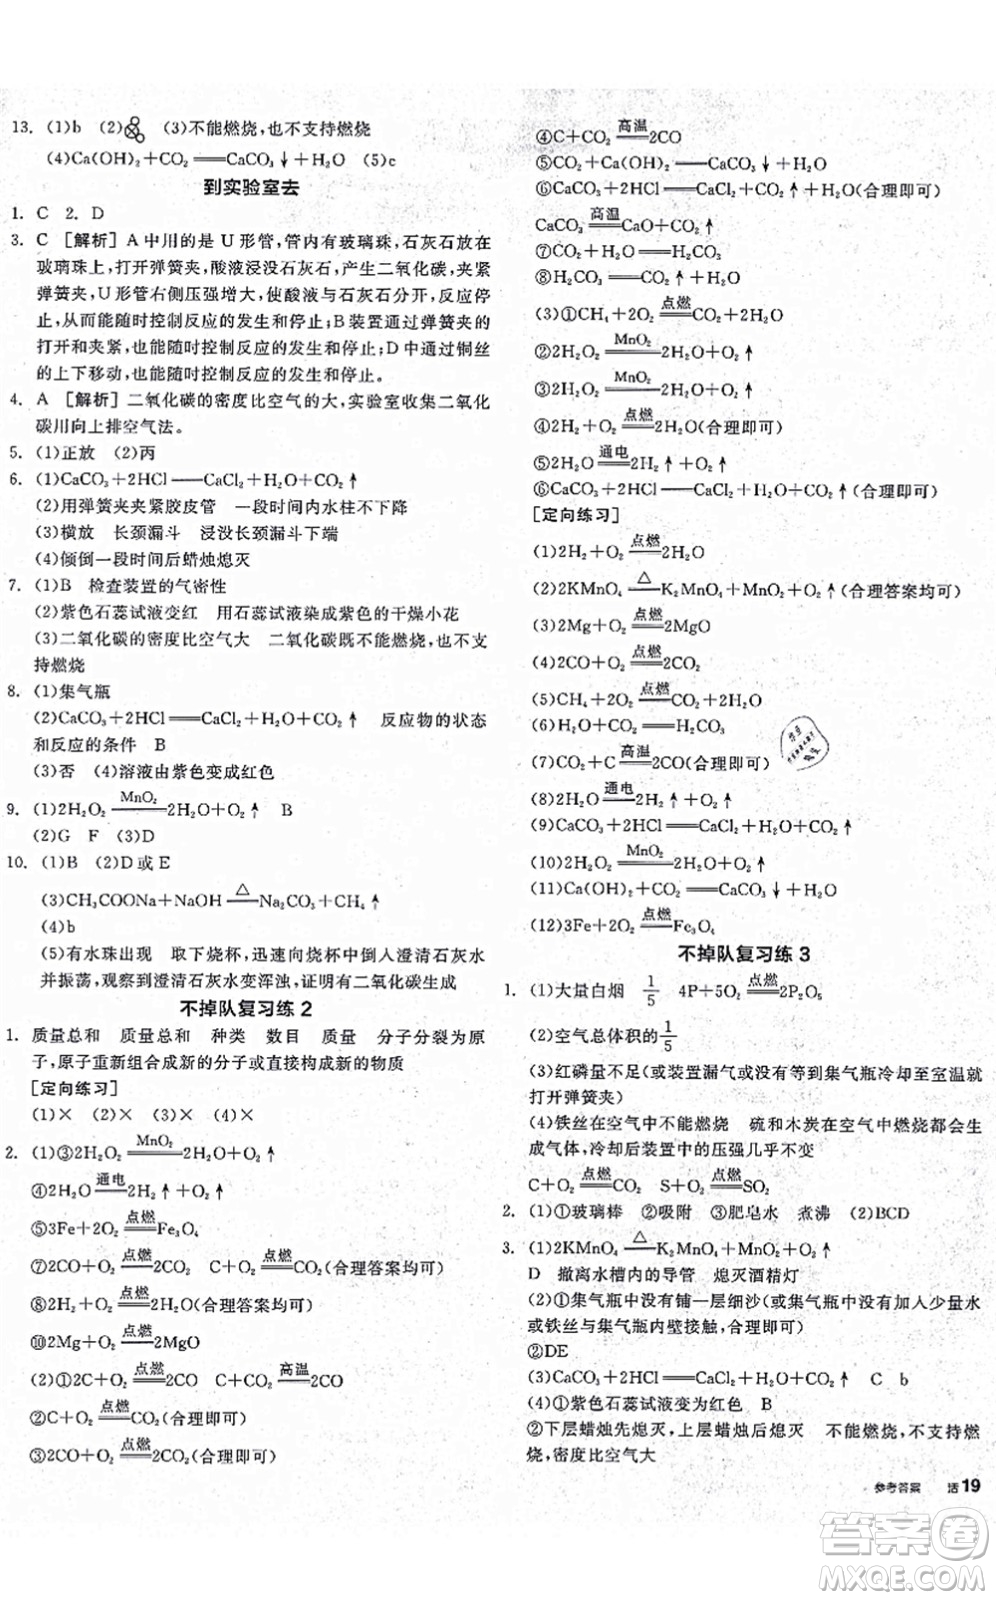 13. (1)b (2) (3)不能燃烧,也不支持燃烧
(4)Ca(OH)₂+CO₂══CaCO₃↓+H₂O (5)c
到实验室去
1. C 2. D
3. C [解析] A中用的是U形管,管内有玻璃珠,石灰石放在
玻璃珠上,打开弹簧夹,酸液浸没石灰石,产生二氧化碳,夹紧
弹簧夹,U形管右侧压强增大,使酸液与石灰石分开,反应停
止,从而能随时控制反应的发生和停止;B装置通过弹簧夹的
打开和夹紧,也能随时控制反应的发生和停止;D中通过铜丝
的上下移动,也能随时控制反应的发生和停止。
4. A [解析] 二氧化碳的密度比空气的大,实验室收集二氧化
碳用向上排空气法。
5. (1)正放 (2)丙
6. (1)CaCO₃+2HCl══CaCl₂+H₂O+CO₂↑
(2)用弹簧夹夹紧胶皮管 一段时间内水柱不下降
(3)横放 长颈漏斗 浸没长颈漏斗下端
(4)倾倒一段时间后蜡烛熄灭
7. (1)B 检查装置的气密性
(2)紫色石蕊试液变红 用石蕊试液染成紫色的干燥小花
(3)二氧化碳的密度比空气大 二氧化碳既不能燃烧,也不支
持燃烧
8. (1)集气瓶
(2)CaCO₃+2HCl══CaCl₂+H₂O+CO₂↑ 反应物的状态
和反应的条件 B
(3)否 (4)溶液由紫色变成红色
9. (1)2H₂O₂ MnO₂══ 2H₂O+O₂↑ B
(2)G F (3)D
10. (1)B (2)D或E
(3)CH₃COONa+NaOH △══ Na₂CO₃+CH₄↑
(4)b
(5)有水珠出现 取下烧杯,迅速向烧杯中倒入澄清石灰水
并振荡,观察到澄清石灰水变浑浊,证明有二氧化碳生成
不掉队复习练2
1. 质量总和 质量总和 种类 数目 质量 分子分裂为原
子,原子重新组合成新的分子或直接构成新的物质
[定向练习]
(1)× (2)× (3)× (4)×
2. (1)③2H₂O₂ MnO₂══ 2H₂O+O₂↑
④2H₂O 通电══ 2H₂↑+O₂↑
⑤3Fe+2O₂ 点燃══ Fe₃O₄
⑦2CO+O₂ 点燃══ 2CO₂ C+O₂ 点燃══ CO₂(合理答案均可)
⑧2H₂+O₂ 点燃══ 2H₂O(合理答案均可)
⑩2Mg+O₂ 点燃══ 2MgO
(2)①2C+O₂ 点燃══ 2CO C+CO₂ 高温══ 2CO
②C+O₂ 点燃══ CO₂(合理即可)
③2CO+O₂ 点燃══ 2CO₂(合理即可)
④C+CO₂ 高温══ 2CO
⑤CO₂+Ca(OH)₂══CaCO₃↓+H₂O
⑥CaCO₃+2HCl══CaCl₂+H₂O+CO₂↑(合理即可)
CaCO₃ 高温══ CaO+CO₂↑
⑦CO₂+H₂O══H₂CO₃
⑧H₂CO₃══CO₂↑+H₂O
(3)①CH₄+2O₂ 点燃══ CO₂+2H₂O
②2H₂O₂ MnO₂══ 2H₂O+O₂↑
③2H₂O₂ MnO₂══ 2H₂O+O₂↑
④2H₂+O₂ 点燃══ 2H₂O(合理即可)
⑤2H₂O 通电══ 2H₂↑+O₂↑
⑥CaCO₃+2HCl══CaCl₂+H₂O+CO₂↑(合理即可)
[定向练习]
(1)2H₂+O₂ 点燃══ 2H₂O
(2)2KMnO₄ △══ K₂MnO₄+MnO₂+O₂↑(合理答案均可)
(3)2Mg+O₂ 点燃══ 2MgO
(4)2CO+O₂ 点燃══ 2CO₂
(5)CH₄+2O₂ 点燃══ CO₂+2H₂O
(6)H₂O+CO₂══H₂CO₃
(7)CO₂+C 高温══ 2CO(合理即可)
(8)2H₂O 通电══ 2H₂↑+O₂↑
(9)CaCO₃+2HCl══CaCl₂+H₂O+CO₂↑
(10)2H₂O₂ MnO₂══ 2H₂O+O₂↑
(11)Ca(OH)₂+CO₂══CaCO₃↓+H₂O
(12)3Fe+2O₂ 点燃══ Fe₃O₄
不掉队复习练3
1. (1)大量白烟 1/5 4P+5O₂ 点燃══ 2P₂O₅
(2)空气总体积的1/5
(3)红磷量不足(或装置漏气或没有等到集气瓶冷却至室温就
打开弹簧夹)
(4)铁丝在空气中不能燃烧 硫和木炭在空气中燃烧会生
成气体,冷却后装置中的压强几乎不变
C+O₂ 点燃══ CO₂ S+O₂ 点燃══ SO₂
2. (1)①玻璃棒 ②吸附 ③肥皂水 煮沸 (2)BCD
3. (1)2KMnO₄ △══ K₂MnO₄+MnO₂+O₂↑
D 撤离水槽内的导管 熄灭酒精灯
(2)①集气瓶中没有铺一层细沙(或集气瓶中没有加入少量水
或铁丝与集气瓶内壁接触,合理即可)
②DE
(3)CaCO₃+2HCl══CaCl₂+H₂O+CO₂↑ C b
(4)①紫色石蕊试液变为红色 B
②下层蜡烛先熄灭,上层蜡烛后熄灭 不能燃烧,不支持燃
烧,密度比空气大
参考答案 活19
答案圈
MXQE.COM